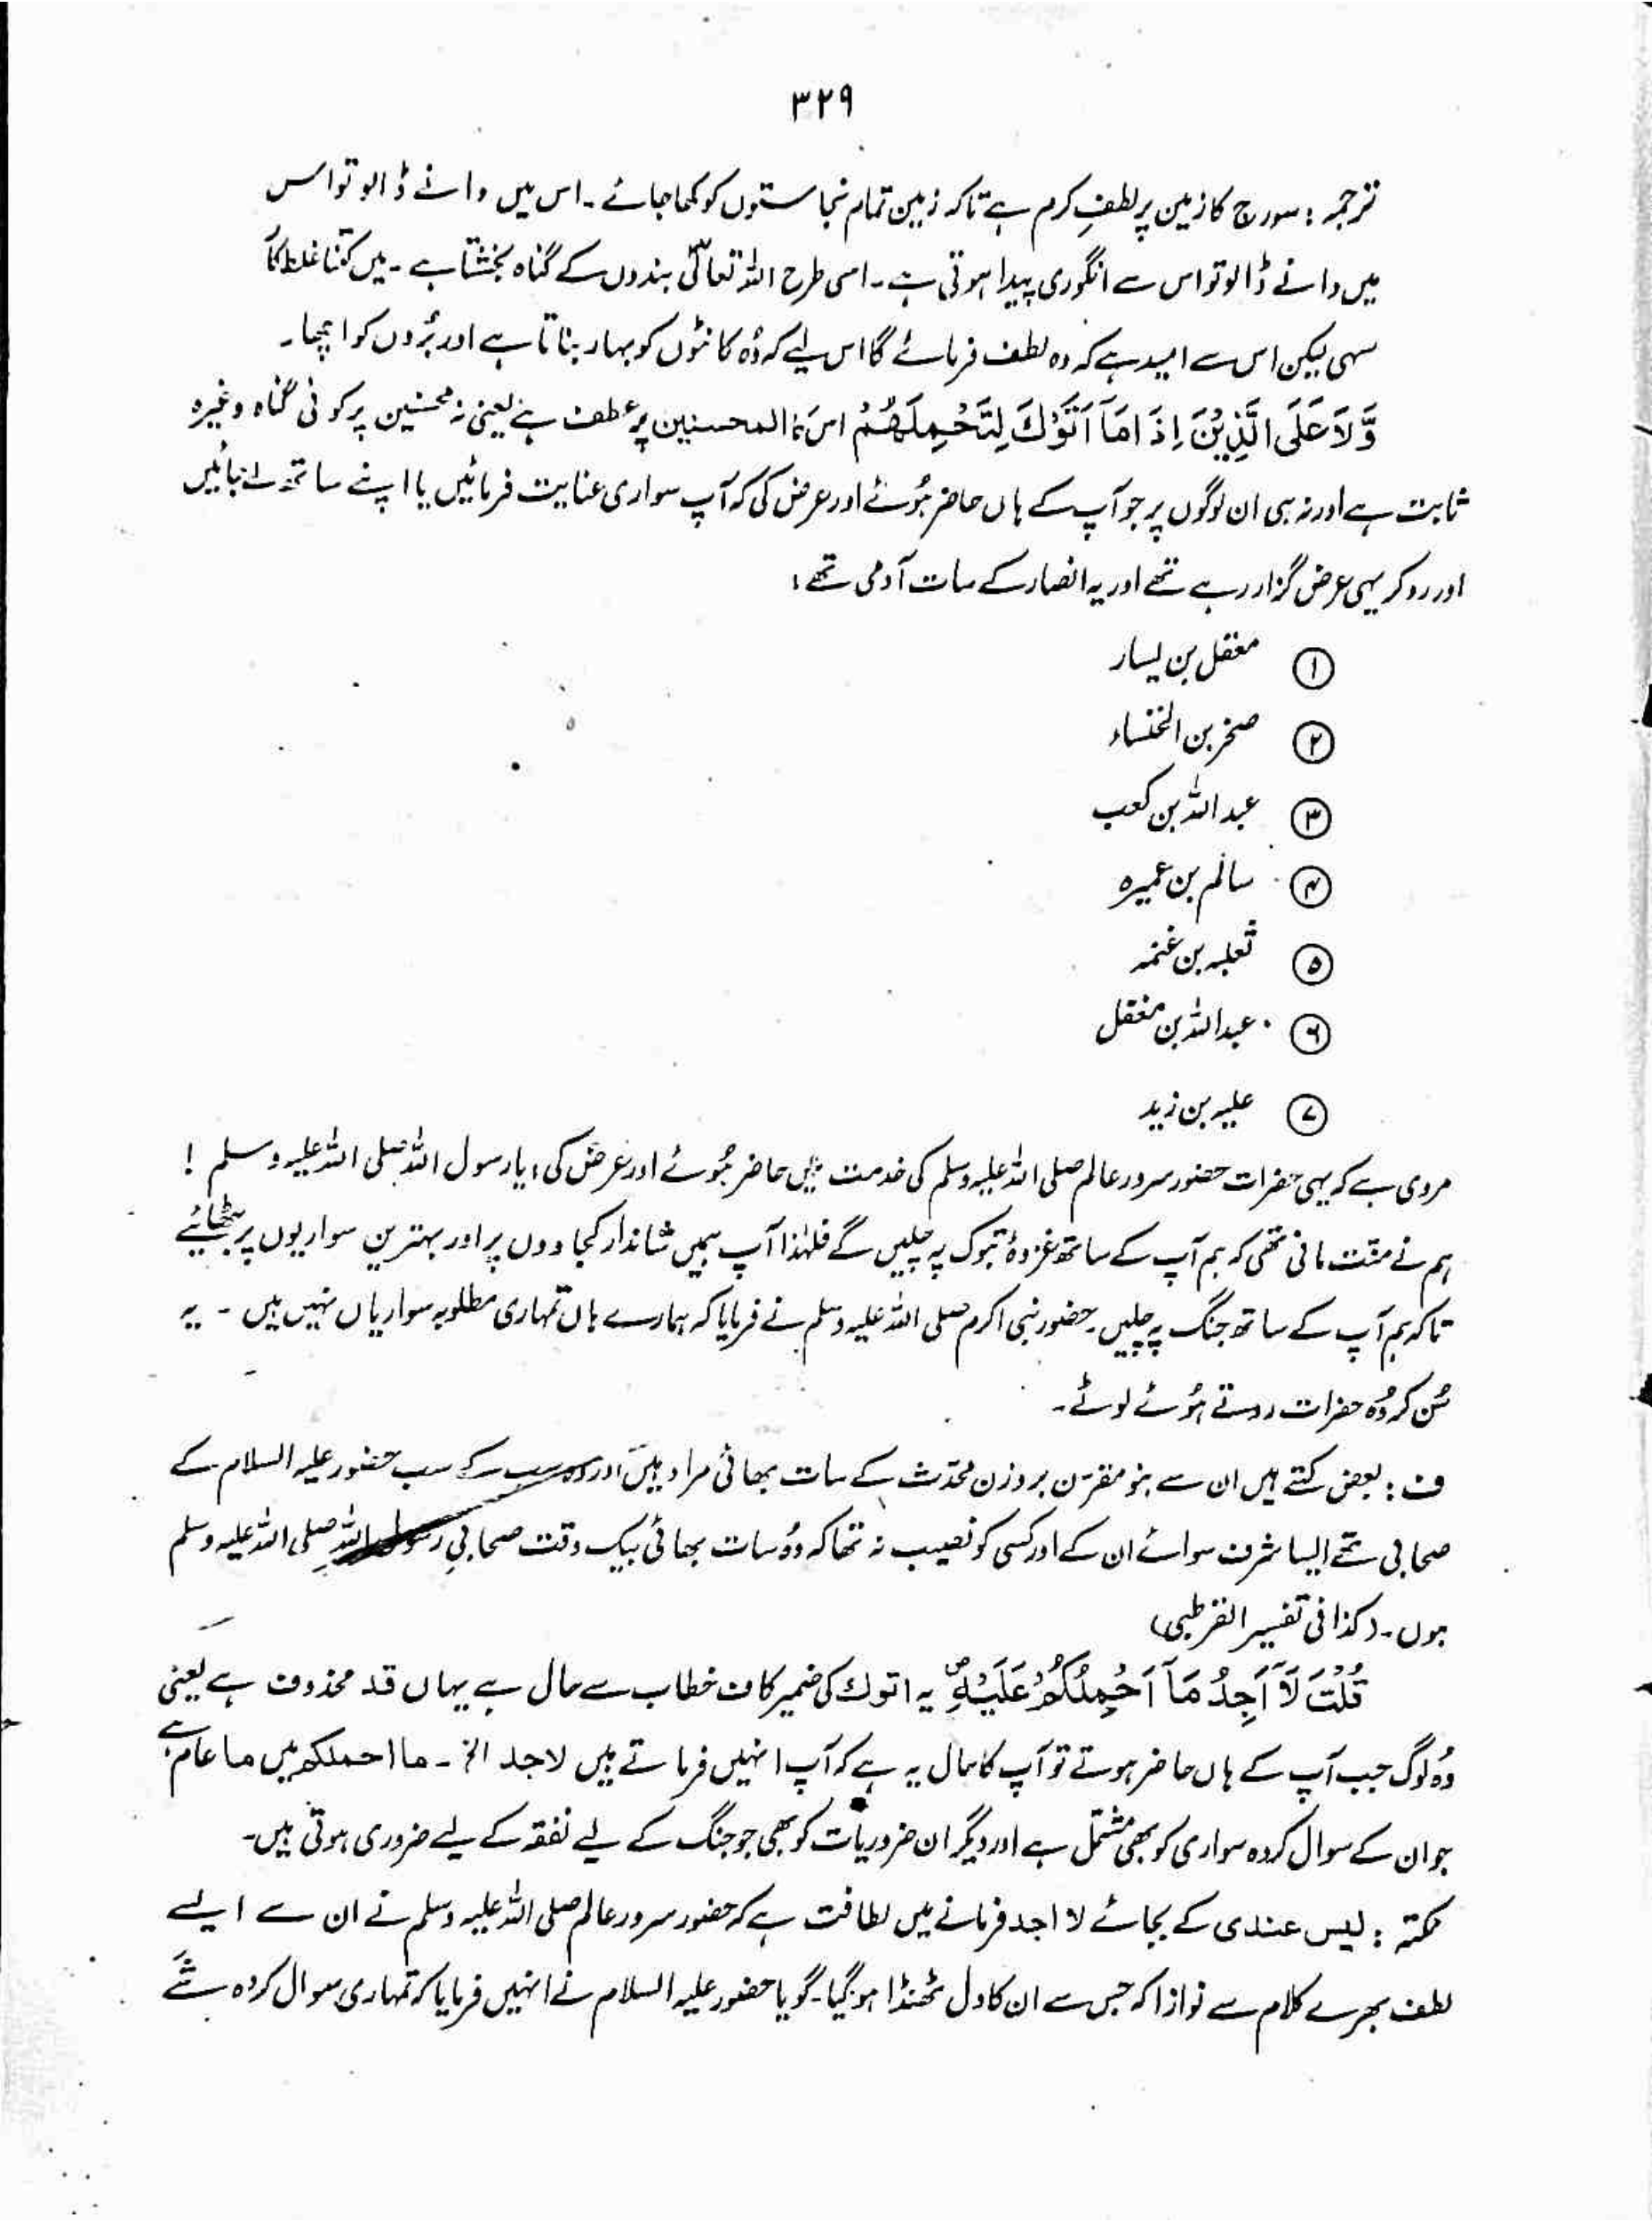 ۳۲۹
ترجمہ : سورج کا زمین پر لطفِ کرم ہے تاکہ زمین تمام نجاستوں کو کھا جائے ۔ اس میں دانے ڈالو تو اس
میں دانے ڈالو تو اس سے انگوری پیدا ہوتی ہے ۔ اسی طرح اللہ تعالیٰ بندوں کے گناہ بخشتا ہے ۔ میں کتنا غلط کار
سہی لیکن اس سے امید ہے کہ وہ لطف فرمائے گا اس لیے کہ وُہ کانٹوں کو بہار بناتا ہے اور بُروں کو اچھا ۔
وَّلَا عَلَى الَّذِيْنَ اِذَا مَآ اَتَوْكَ لِتَحْمِلَهُمْ اس کا المحسنین پر عطف ہے یعنی نہ محسنین پر کوئی گناہ وغیرہ
ثابت ہے اور نہ ہی ان لوگوں پر جو آپ کے ہاں حاضر ہُوئے اور عرض کی کہ آپ سواری عنایت فرمائیں یا اپنے ساتھ لے جائیں
اور رو کر یہی عرض گزار رہے تھے اور یہ انصار کے سات آدمی تھے :
① معقل بن یسار
② صخر بن الخنساء
③ عبداللہ بن کعب
④ سالم بن عمیرہ
⑤ ثعلبہ بن غنمہ
⑥ عبداللہ بن مغفل
⑦ علیہ بن زید
مروی ہے کہ یہی حضرات حضور سرور عالم صلی اللہ علیہ وسلم کی خدمت میں حاضر ہُوئے اور عرض کی : یا رسول اللہ صلی اللہ علیہ وسلم !
ہم نے منّت مانی تھی کہ ہم آپ کے ساتھ غزوۂ تبوک پہ چلیں گے فلہٰذا آپ ہمیں شاندار کجاووں پر اور بہترین سواریوں پر بٹھائیے
تاکہ ہم آپ کے ساتھ جنگ پہ چلیں ۔ حضور نبی اکرم صلی اللہ علیہ وسلم نے فرمایا کہ ہمارے ہاں تمہاری مطلوبہ سواریاں نہیں ہیں ۔ یہ
سُن کر وُہ حضرات روتے ہُوئے لوٹے ۔
ف : بعض کہتے ہیں ان سے بنو مقرّن بروزن محدّث کے سات بھائی مراد ہیں اور وہ سب کے سب حضور علیہ السلام کے
صحابی تھے ایسا شرف سوائے ان کے اور کسی کو نصیب نہ تھا کہ وُہ سات بھائی بیک وقت صحابیِ رسول اللہ صلی اللہ علیہ وسلم
ہوں ۔ (کذا فی تفسیر القرطبی)
قُلْتَ لَآ اَجِدُ مَآ اَحْمِلُكُمْ عَلَيْهِ ۖ یہ اتوك کی ضمیر کاف خطاب سے حال ہے یہاں قد محذوف ہے یعنی
وُہ لوگ جب آپ کے ہاں حاضر ہوتے تو آپ کا حال یہ ہے کہ آپ انہیں فرماتے ہیں لاجد الخ ۔ ما احملكم میں ما عام ہے
جو ان کے سوال کردہ سواری کو بھی مشتمل ہے اور دیگر ان ضروریات کو بھی جو جنگ کے لیے نفقہ کے لیے ضروری ہوتی ہیں ۔
نکتہ : لیس عندی کے بجائے لا اجد فرمانے میں لطافت ہے کہ حضور سرور عالم صلی اللہ علیہ وسلم نے ان سے ایسے
لطف بھرے کلام سے نوازا کہ جس سے ان کا دل ٹھنڈا ہو گیا ۔ گویا حضور علیہ السلام نے انہیں فرمایا کہ تمہاری سوال کردہ شے